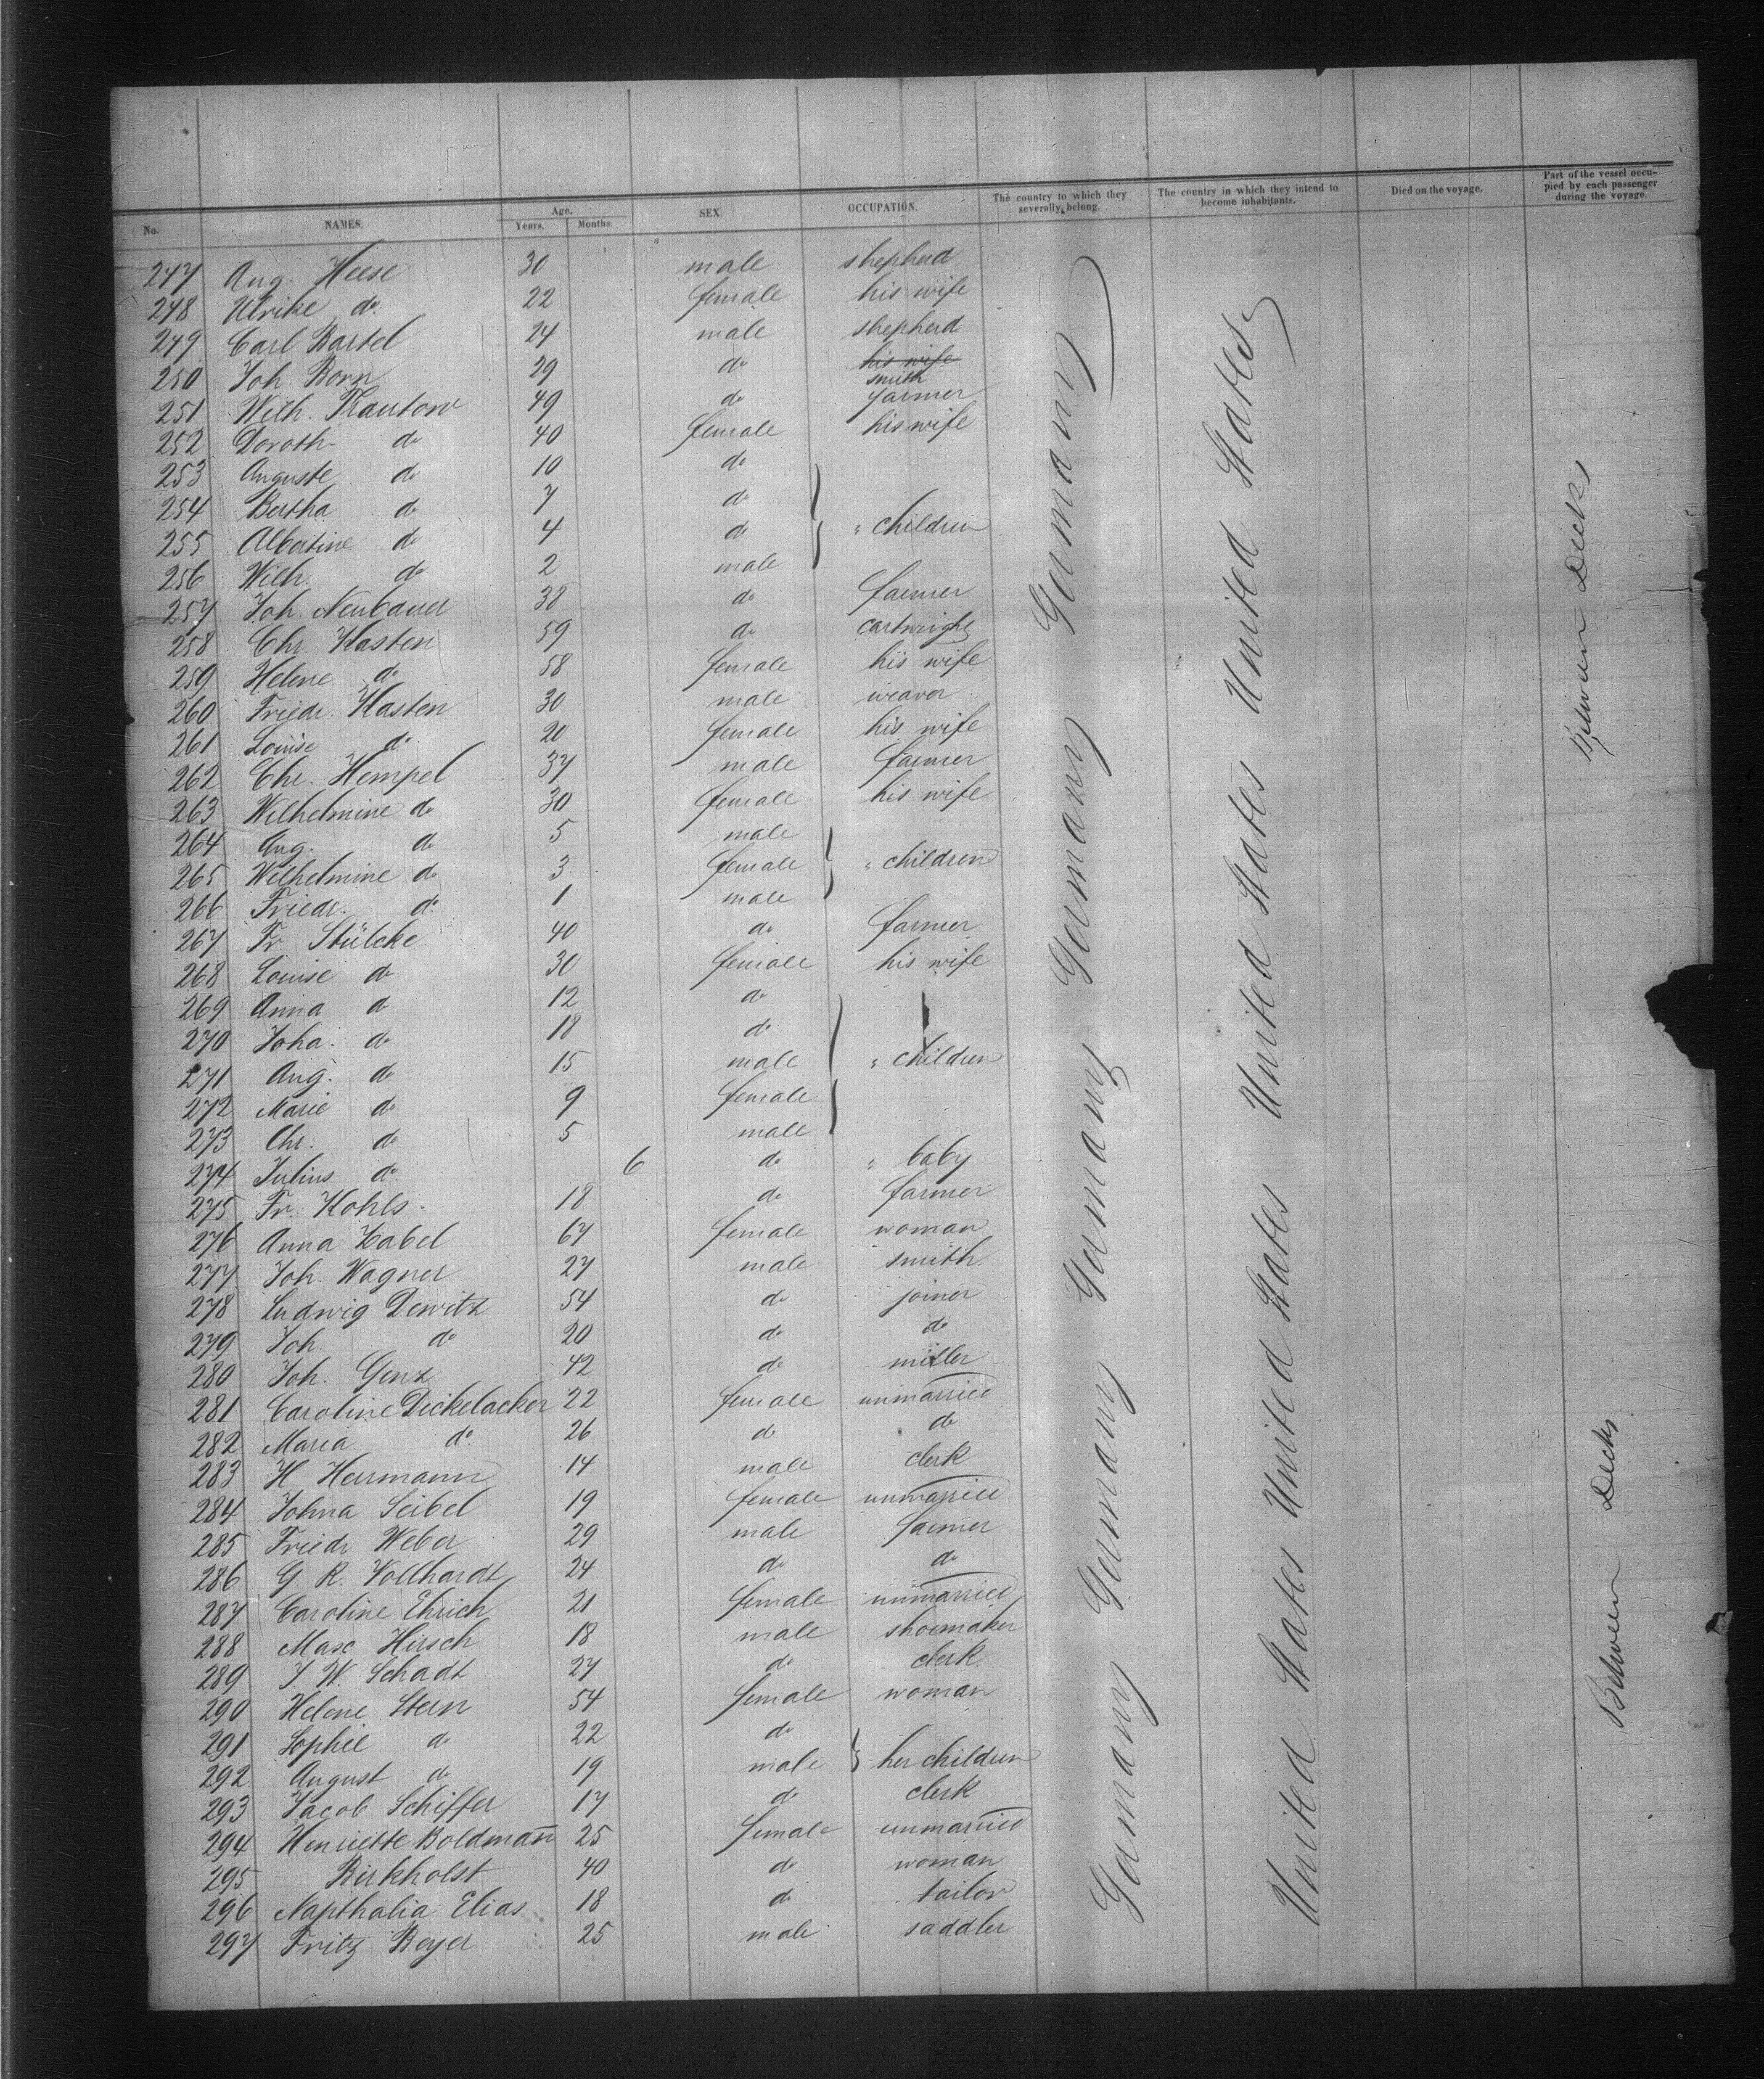 No. NAMES. Age. Years. Months. SEX. OCCUPATION. The country to which they severally belong. The country in which they intend to become inhabitants. Died on the voyage. Part of the vessel occupied by each passenger during the voyage.
247 Aug. Heese 30 male shepherd
248 Ulrike do 22 female his wife
249 Carl Bartel 24 male shepherd
250 Joh. Born 29 do his wife smith
251 Wilh. Rautow 49 do farmer
252 Doroth. do 40 female his wife
253 Auguste do 10 do
254 Bertha do 7 do
255 Albertine do 4 do " children
256 Wilh. do 2 male
257 Joh. Neubauer 38 do farmer
258 Chr. Kasten 59 do cartwright
259 Helene do 58 female his wife
260 Friedr. Kasten 30 male weaver
261 Louise do 20 female his wife
262 Chr. Hempel 37 male farmer
263 Wilhelmine do 30 female his wife
264 Aug. do 5 male
265 Wilhelmine do 3 female " children
266 Friedr. do 1 male
267 Fr. Stülcke 40 do farmer
268 Louise do 30 female his wife
269 Anna do 12 do
270 Joha. do 18 do
271 Aug. do 15 male " children
272 Marie do 9 female
273 Chr. do 5 male
274 Julius do 6 do " baby
275 Fr. Kohls. 18 do farmer
276 Anna Zabel 67 female woman
277 Joh. Wagner 27 male smith
278 Ludwig Dewitz 54 do joiner
279 Joh. do 20 do do
280 Joh. Genz 42 do miller
281 Caroline Dickelacker 22 female unmarried
282 Maria do 26 do do
283 H Herrmann 14 male clerk
284 Johna Seibel 19 female unmarried
285 Friedr Weber 29 male farmer
286 G R. Vollhardt 24 do do
287 Caroline Ehrich 21 female unmarried
288 Max Hirsch 18 male shoemaker
289 J W. Schadt 27 do clerk
290 Helene Stern 54 female woman
291 Sophie do 22 do
292 August do 19 male her children
293 Jacob Schiffer 17 do clerk
294 Henriette Boldman̄ 25 female unmarried
295 Birkholst 40 do woman
296 Napthalia Elias 18 do tailor
297 Fritz Beyer 25 male saddler
Germany Germany Germany Germany Germany Germany
United States United States United States United States
Between Decks Between Decks